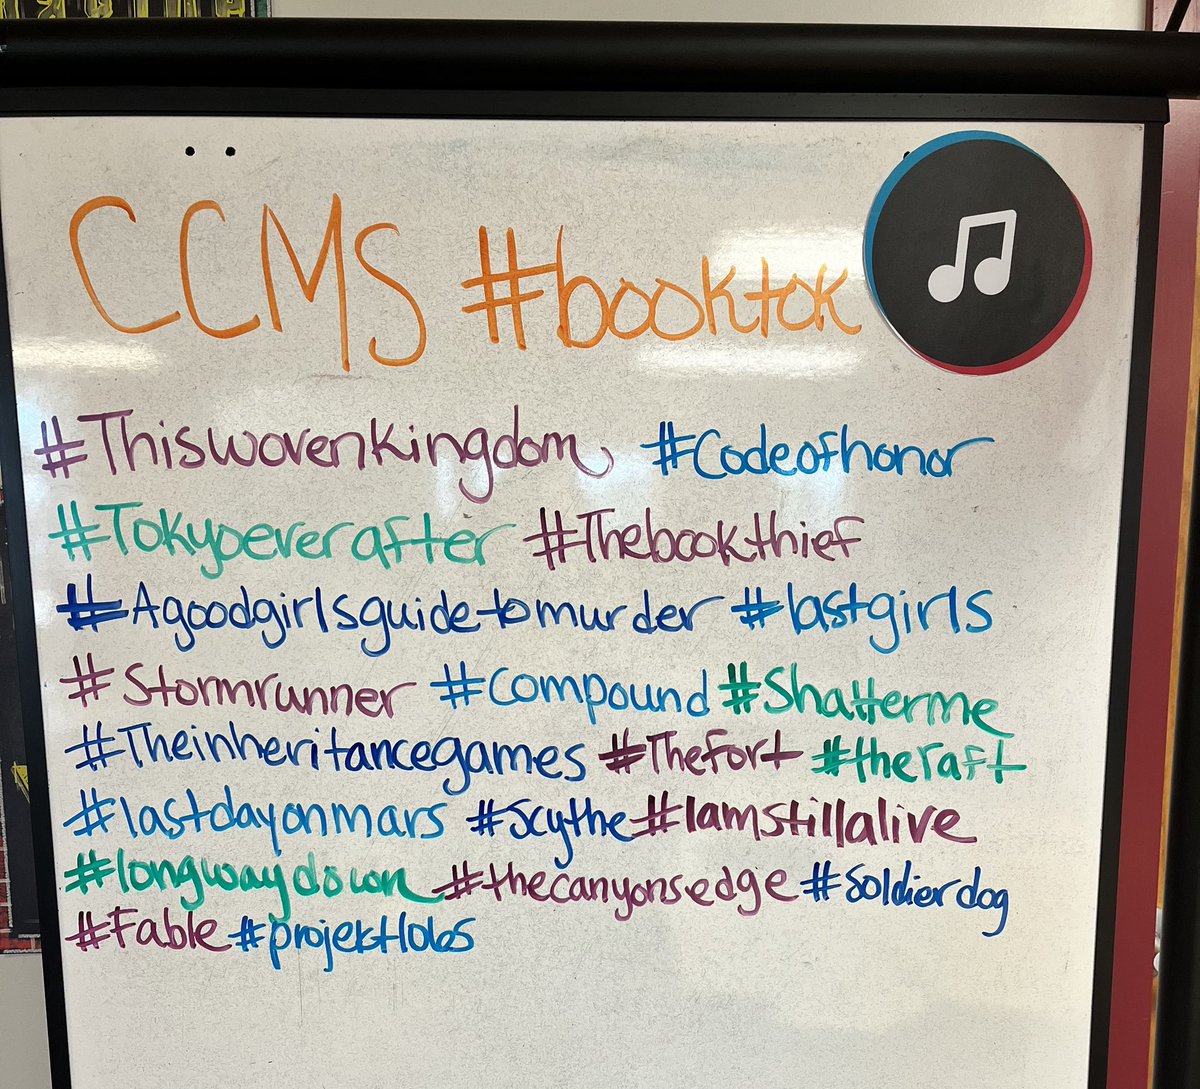 CCMS #booktok
#Thiswovenkingdom #Codeofhonor
#Tokyoeverafter #Thebookthief
#Agoodgirlsguidetomurder #lastgirls
#Stormrunner #Compound #Shatterme
#Theinheritancegames #TheFort #theraft
#lastdayonmars #Scythe #Iamstillalive
#longwaydown #thecanyonsedge #Soldierdog
#Fable #projekt1065